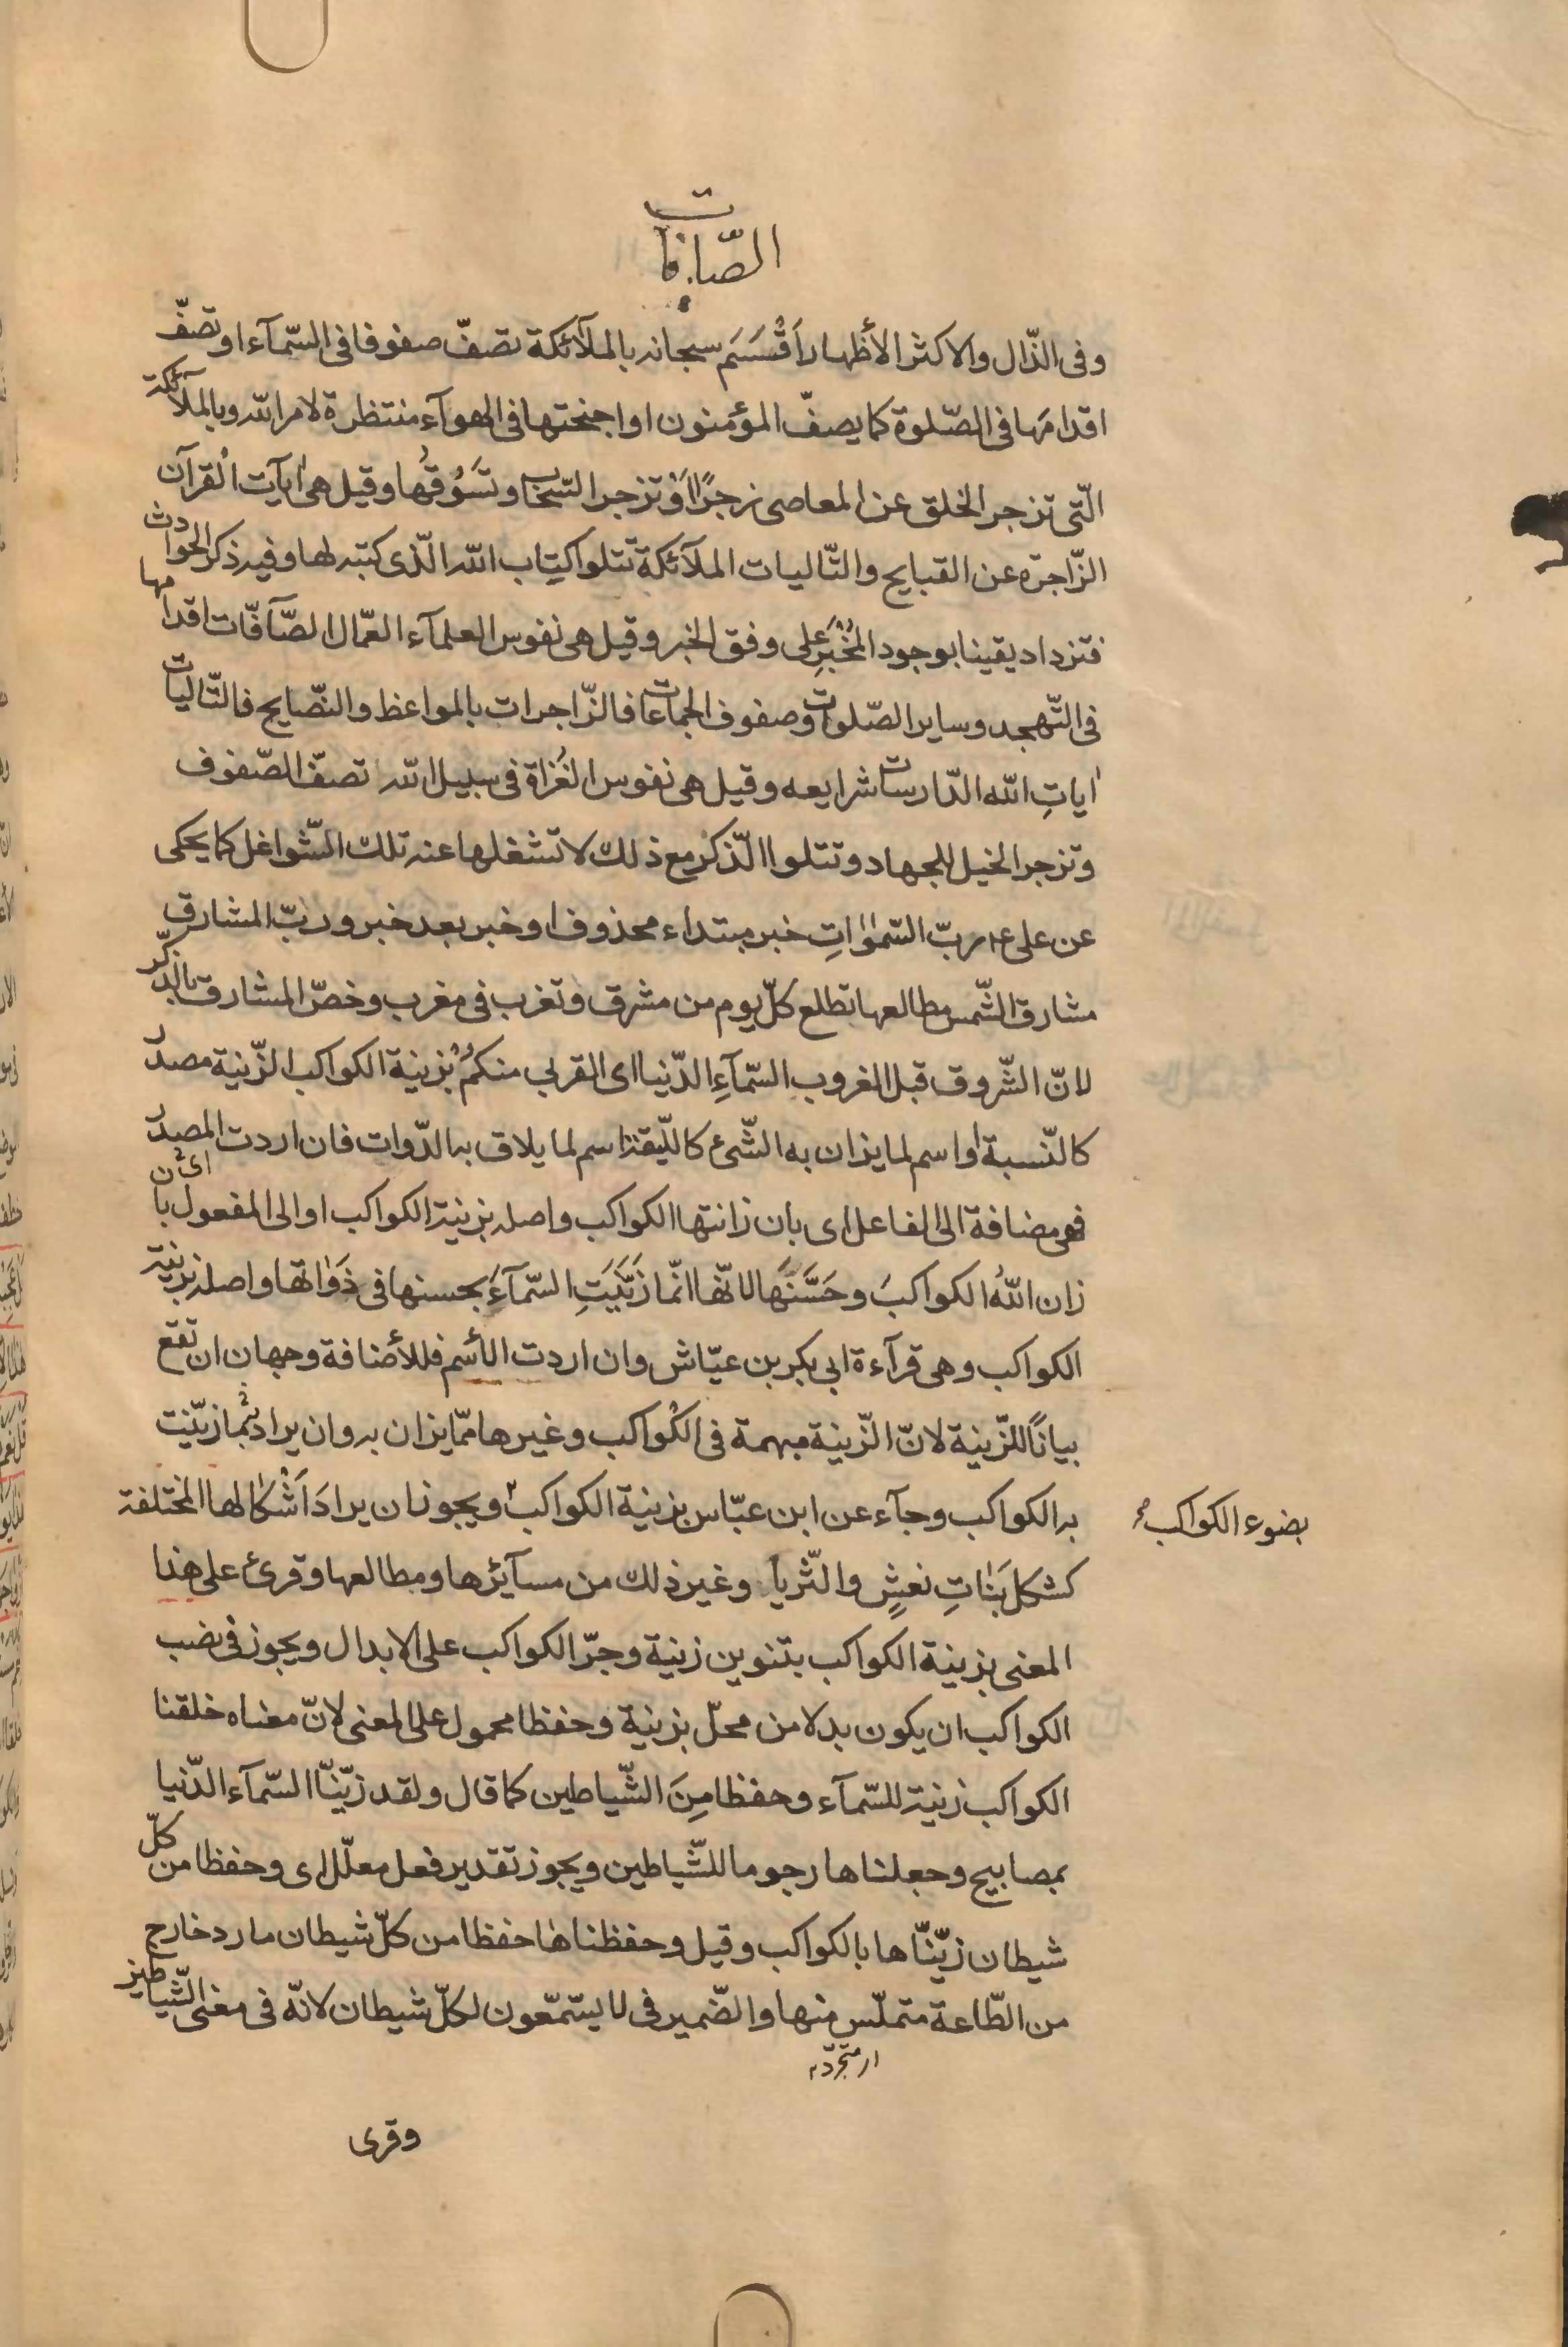 الصّافات
وفى الذّال والاكثر الأظهار اَقْسَمَ سبحانه بالملآئكة تصفّ صفوفا فى السّمآء او تصفّ
اقدامَها فى الصّلوة كما يصفّ المؤمنون او اجنحتها فى الهوآء منتظرة لامر الله وبالملآئكة
الّتى تزجر الخلق عن المعاصى زجرًا اَوْ تزجر السّحاب وتَسُوقُها وقيل هى اٰيات القرآن
الزّاجرة عن القبايح والتّاليات الملآئكة تتلوا كتاب الله الّذى كتبه لها وفيه ذكر الحوادث
فتزداد يقينا بوجود المُخْبَرِ على وفق الخبر وقيل هى نفوس العلمآء العمّال الصّآفّات اقدامها
فى التّهجد وساير الصّلوات وصفوف الجماعات فالزّاجرات بالمواعظ والنّصايح فالتّاليات
اٰياتِ الله الدّارسات شرايعه وقيل هى نفوس الغُزاة فى سبيل الله تصفّ الصّفوف
وتزجر الخيل للجهاد وتتلوا الذّكر مع ذلك لا تشغلها عنه تلك الشّواغل كما يحكى
عن على عم ربّ السّمٰوٰاتِ خبر مبتداء محذوف او خبر بعد خبر وربّ المشارق
مشارق الشّمس مطالعها تطلع كلّ يوم من مشرق وتغرب فى مغرب وخصّ المشارق بالذّكر
لانّ الشّروق قبل الغروب السّمآءِ الدّنيا اى القربى منكمْ بزينة الكواكب الزّينة مصدر
كالنّسبة او اسم لما يزان به الشّئ كاللّيقة اسم لما يلاق به الدّوات فان اردت المصدر
فهى مضافة الى الفاعل اى بان زانتها الكواكب واصله بزينة الكواكب او الى المفعول اى بأن
زان اللهُ الكواكبَ وحَسَّنَها لانّها انّما زَيَّنَتِ السّمآءَ بحسنها فى ذَوٰاتها واصله بزينة
الكواكب وهى قرآءة ابى بكر بن عيّاش وان اردت الأسم فللأضافة وجهان ان تقع
بياناً للزّينة لانّ الزّينة مبهمة فى الكواكب وغيرها ممّا يزان به وان يراد بما زيّنت
به الكواكب وجآء عن ابن عبّاس بزينة الكواكب ويجوز ان يرادَ اَشْكالها المختلفة
بضوء الكواكب
كشكل بَنٰاتِ نعشٍ والثّريا وغير ذلك من مسآئرها ومطالعها وقرئ على هذا
المعنى بزينة الكواكب بتنوين زينة وجرّ الكواكب على الابدال ويجوز فى نصب
الكواكب ان يكون بدلا من محلّ بزينة وحفظا محمول على المعنى لانّ معناه خلقنا
الكواكب زينة للسّمآء وحفظا مِنَ الشّياطين كما قال ولقد زيّنّا السّمآء الدّنيا
بمصابيح وجعلناها رجوما للشّياطين ويجوز تقدير فعل معلّل اى وحفظا من كلّ
شيطان زيّنّاها بالكواكب وقيل وحفظناها حفظا من كلّ شيطان مارد خارج
من الطّاعة متملّس منها والضّمير فى لا يسّمّعون لكلّ شيطان لانّه فى معنى الشّياطين
وقرى